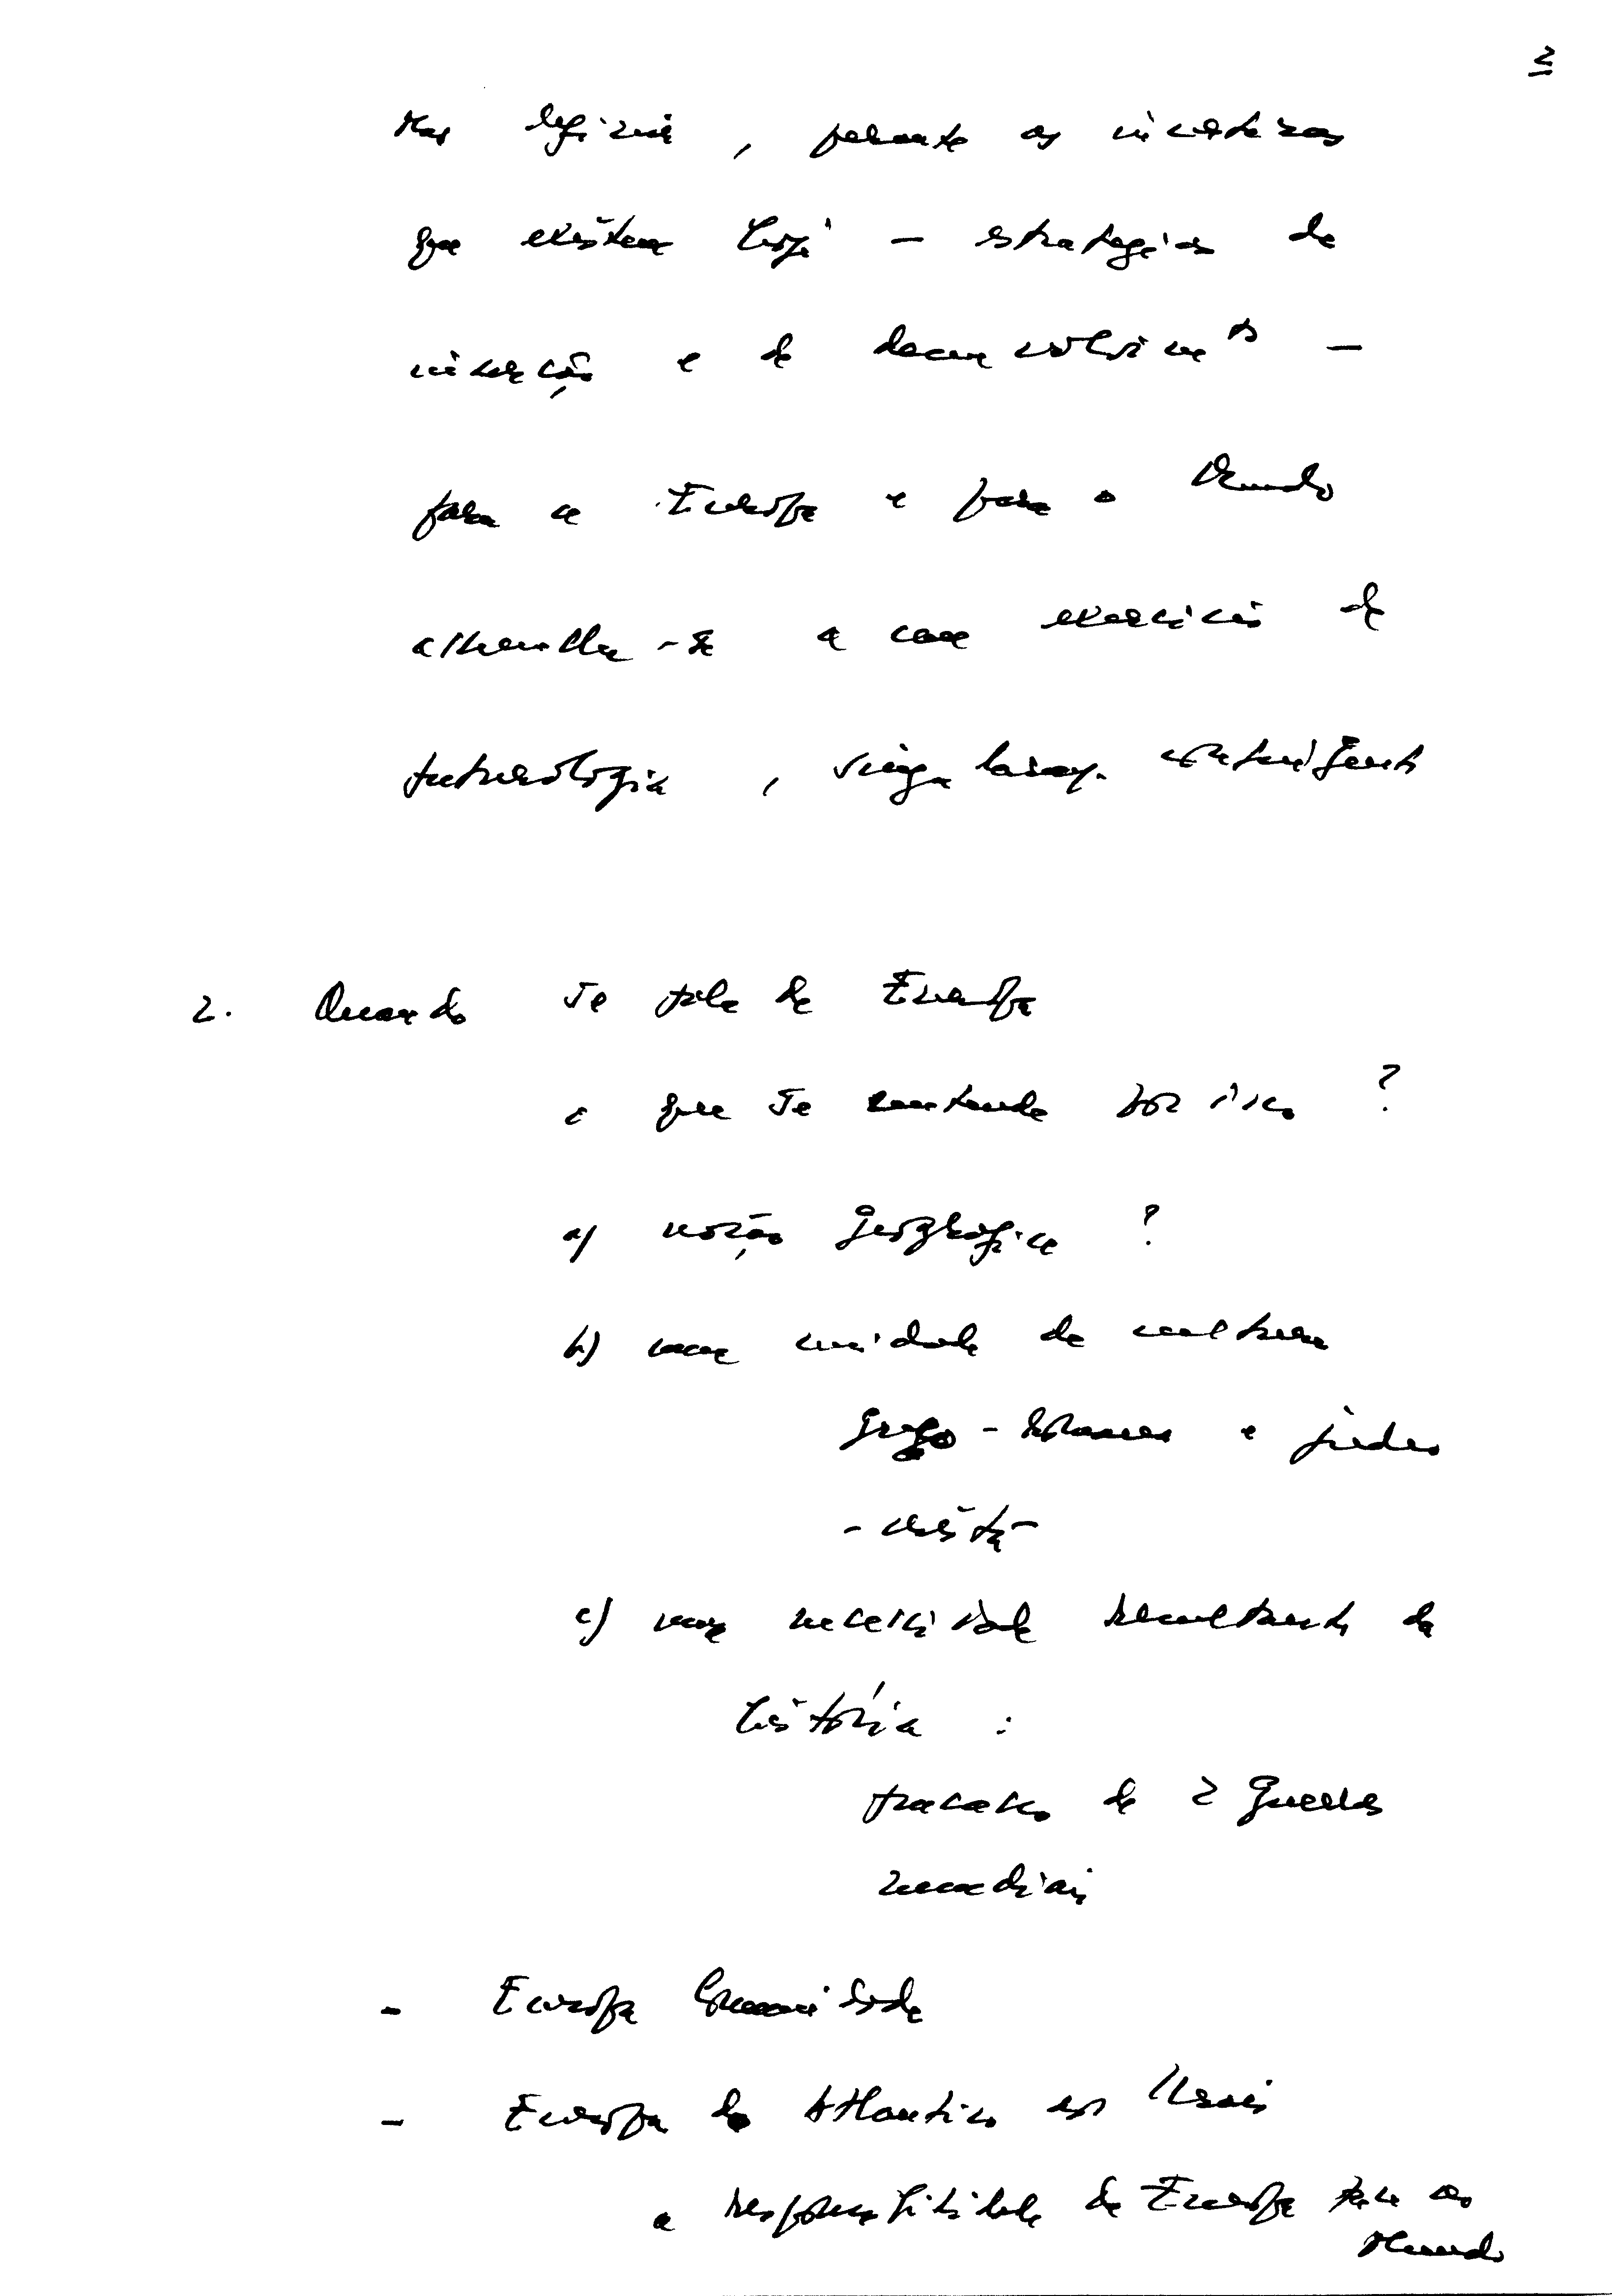 2
Mas defini-las, perante as incertezas
que existem hoje - estratégias de
inserção e de desenvolvimto -
para a Europa e para o Mundo
assemelha-se a um exercício de
futurologia, contingente
2. Quando se fala de Europa
o que se entende por isso?
a) noção geográfica?
b) uma unidade de cultura
grego-romana e judeo
-cristã
c) uma necessidade resultante da
história:
fracasso de 2 guerras
mundiais
- Europa Comunidade
- Europa do Atlantico aos Urais
a responsabilidade da Europa face ao
Mundo